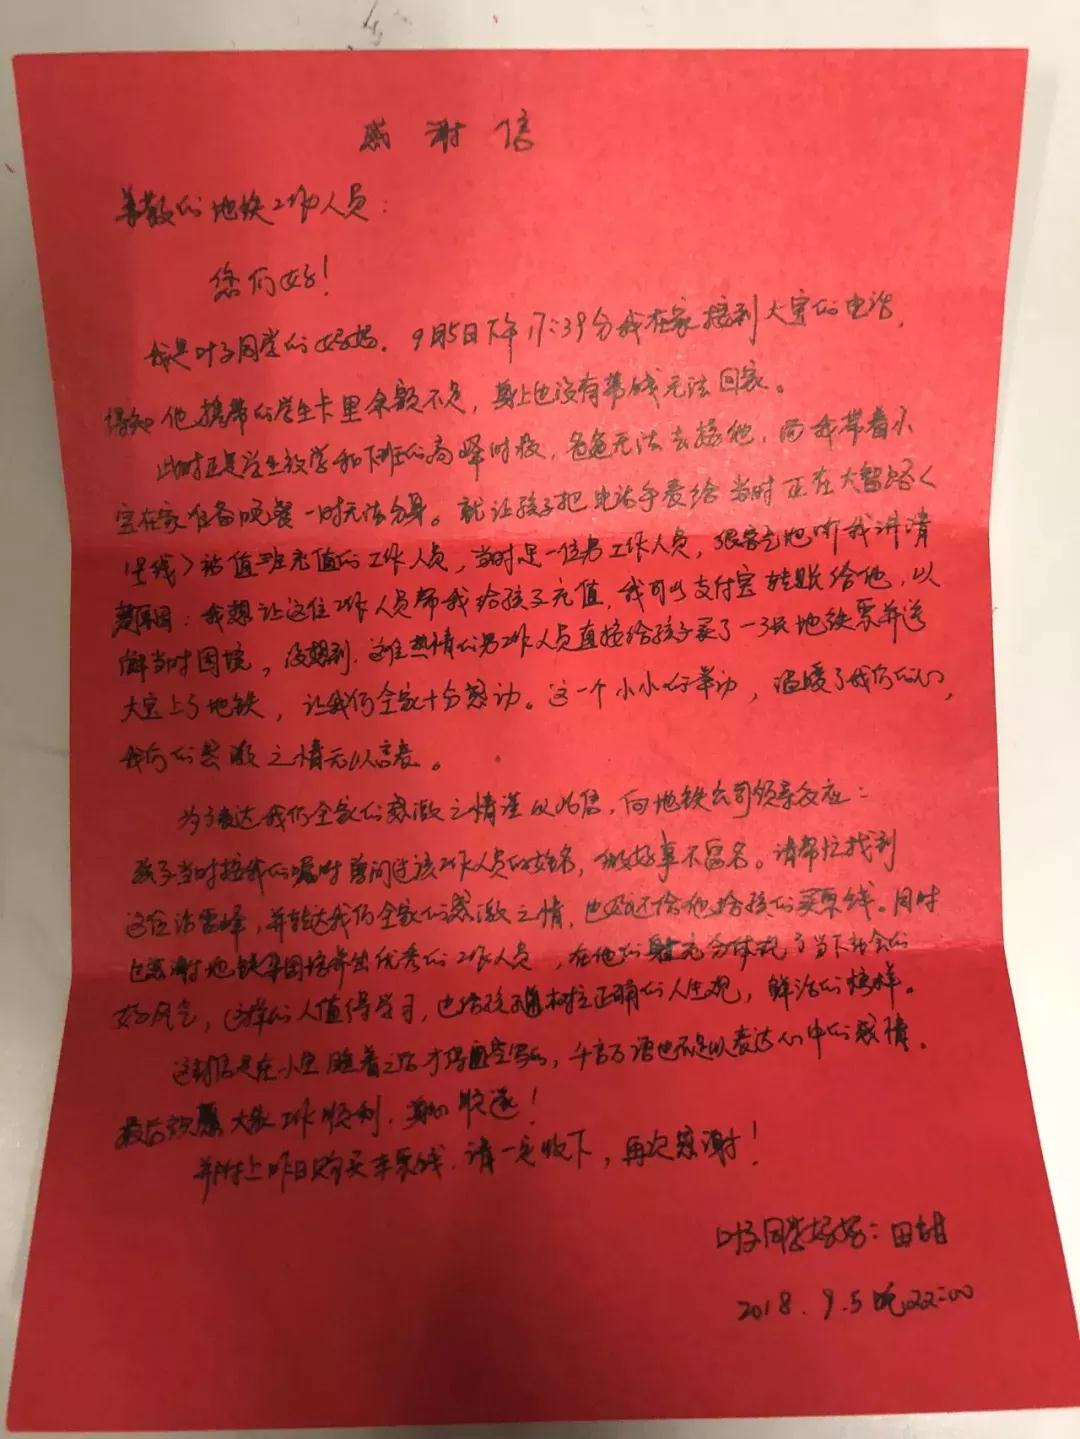 感谢信
尊敬的地铁工作人员：
您们好！
我是叶子同学的妈妈。9月5日下午17:39分我在家接到大宝的电话，
得知他携带的学生卡里余额不足，身上也没有带钱无法回家。
此时正是学生放学和下班的高峰时段，爸爸无法去接他，而我带着小
宝在家准备晚餐一时无法分身。就让孩子把电话手表给当时正在大智路〈
1号线〉站值班充值的工作人员，当时是一位男工作人员，很客气地听我讲清
原因：我想让这位工作人员帮我给孩子充值，我可以支付宝转账给他，以
解当时困境。没想到，这位热情的男工作人员直接给孩子买了一张地铁票并送
大宝上了地铁，让我们全家十分感动。这一个小小的举动，温暖了我们的心，
我们的感激之情无以言表。
为了表达我们全家的感激之情谨以此信，向地铁公司领导反应：
孩子当时按我的嘱咐曾问过该工作人员的姓名，做好事不留名。请帮忙找到
这位活雷锋，并转达我们全家的感激之情，也好还给他给孩的买票钱。同时
感谢地铁集团培养出优秀的工作人员，在他们身充分体现了当下社会的
好风气，这样的人值得学习，也给孩子树立正确的人生观，鲜活的榜样。
这封信是在小宝睡着之后才得空写的，千言万语也不足以表达心中的感情。
最后祝愿大家工作顺利，身心顺遂！
并附上昨日购买车票钱，请一定收下，再次感谢！
叶子同学妈妈：田甜
2018.9.5晚22:00